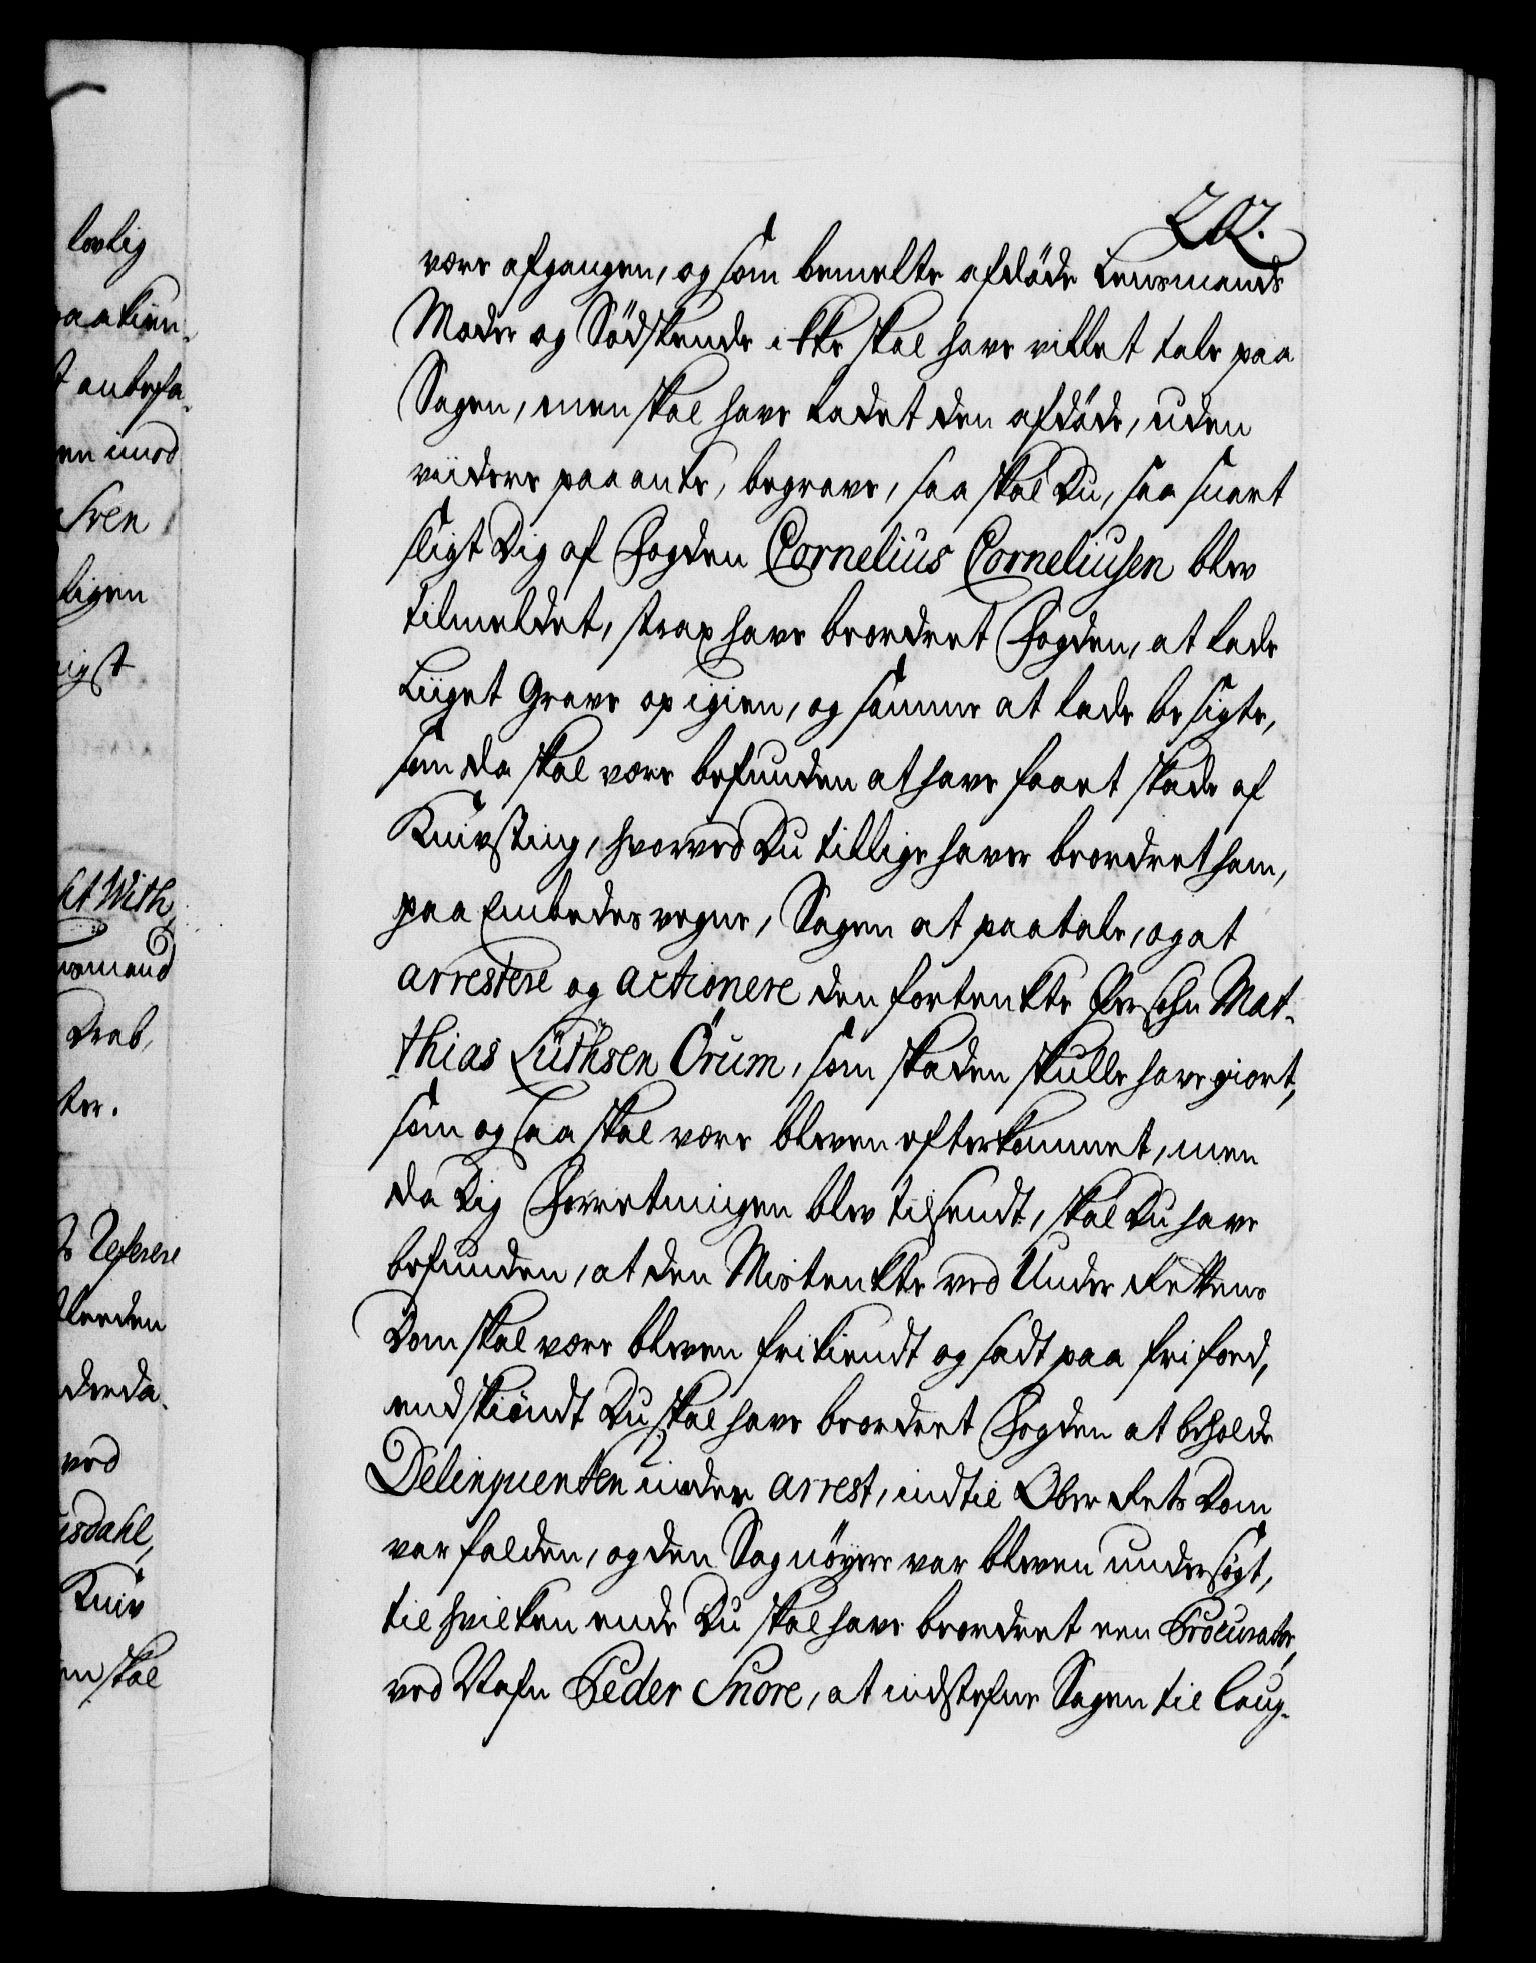 lovlig
paakien-
t anbefa-
en imod
Sven
ligen
nigst
cht With
nsmand
Drab,
ter.
Referere
lerden
derda-
ved
isdahl,
Kniv
en skal
202.
være afgangen, og som bemelte afdöde Lensmands
Moder og Södskende ikke skal have villet tale paa
Sagen, men skal have ladet den afdöde, uden
viidere paaanke, begrave, saa skal Du, saa snart
sligt Dig af Fogden Cornelius Corneliusen blev
tilmeldet, strax have beordret Fogden, at lade
Liiget Grave op igien, og samme at lade besigte,
som da skal være befunden at have faaet skade af
Knivsting, hvorved Du tillige haver beordret ham,
paa Embedes vegne, Sagen at paatale, og at
arrestere og actionere den fortenkte Persohn Mat-
thias Lüthsen Örum, som skaden skulle have giort,
som og saa skal være bleven efterkommet, men
da Dig Forretningen blev tilsendt, skal Du have
befunden, at den Mistenkte ved Under Rettens
Dom skal være bleven frikiendt og sadt paa fri foed,
endskiöndt Du skal have beordret Fogden at beholde
Delinquenten under arrest, indtil Ober Rets Dom
var falden, og den Sag nöyere var bleven undersögt,
til hvilken ende Du skal have beordret een Procurator,
ved Nafn Peder Snore, at indstefne Sagen til Laug-